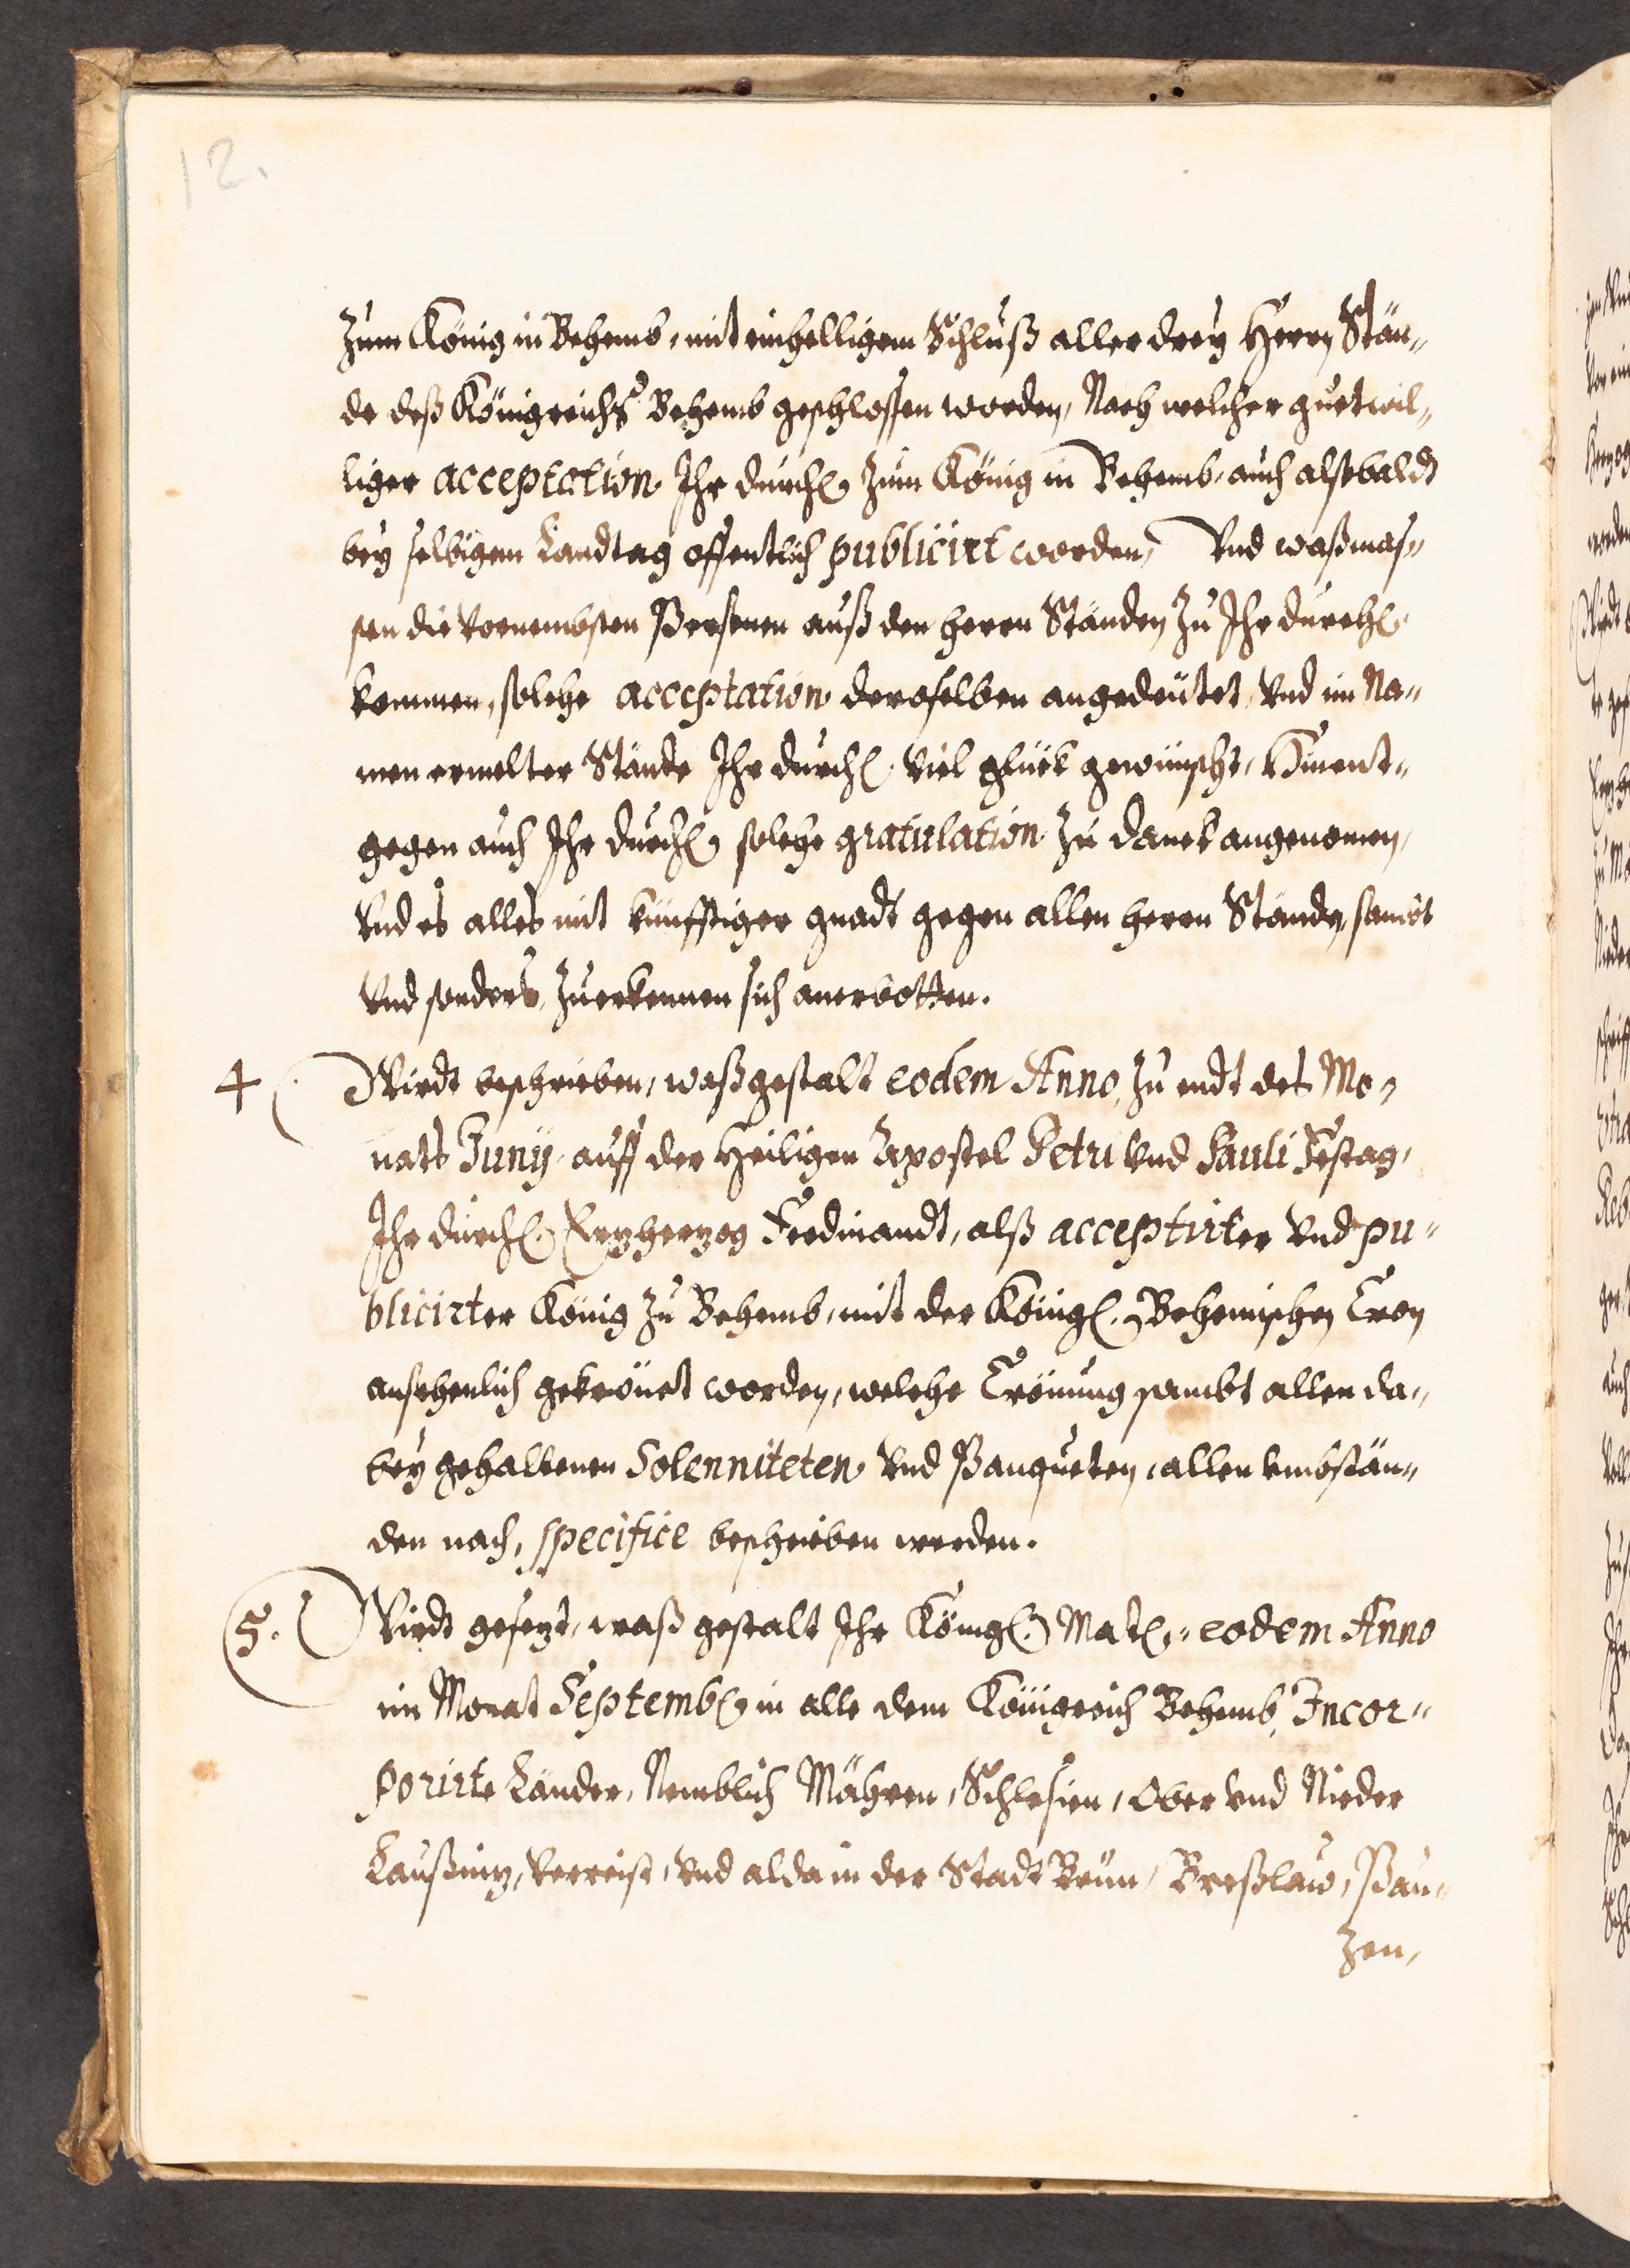 12.
zum König in Behemb, mit einhelligem Schluß aller drey Herrn Stän„
de deß Königreichs Behemb geschlossen worden, Nach welcher guetwil„
liger acceptation Ihr durchl. zum König in Behemb, auch alßbaldt
bey selbigem Landtag offentlich publicirt worden, Vnd waßmas„
sen die Vornembsten Persenen auß den herrn Ständen zu Ihr durchl.
kommen, solche acceptation deroselben angedeutet, Vnd im Na„
men ermelter Stände Ihr durchl. viel glück gewünscht, Hinent„
gegen auch Ihr durchl. solche gratulation zu danck angenomen,
Vnd es alles mit künfftiger gnadt gegen allen herrn Ständen, sambt
Vnd sonders, zuerkennen sich anerbotten.
4 Wirdt beschrieben, waßgestalt eodem Anno, zu endt des Mo„
nats Junij, auff der Heiligen Apostel Petri Vnd Pauli Festag,
Ihr durchl. Erzherzog Ferdinandt, alß acceptirter Vnd pu„
blicirter König zu Behemb, mit der Königl. Behemischen Cron
ansehenlich gekrönet worden, welche Crönung sambt allen da„
bey gehaltenen Solenniteten Vnd Panqueten, allen vmbstän„
den nach, specifice beschrieben werden.
5. Wirdt gesezt, waß gestalt Ihr Königl. Matl. eodem Anno
im Monat Septembl. in alle dem Königreich Behemb, Incor„
porirte Länder, Nemblich Mähren, Schlesien, Ober vnd Nieder
Laußniz, Verreist, Vnd alda in der Stadt Brün, Breßlaw, Pau„
zen,